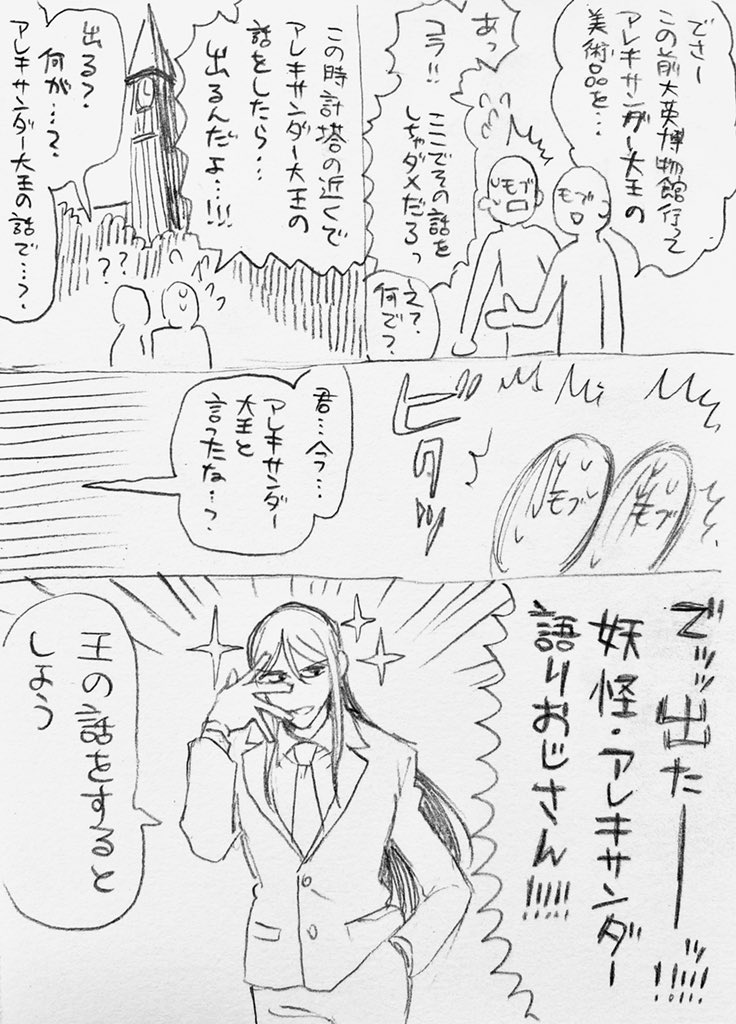 でさー
この前大英博物館行って
アレキサンダー大王の
美術品を…
モブ
モブ
あっ
コラ!!
ここでその話を
しちゃダメだろっ
え?
何で?
この時計塔の近くで
アレキサンダー大王の
話をしたら…
出るんだよ…!!!
出る?
何が…?
アレキサンダー大王の話で…?
??
モブ
モブ
ビタッ
君…今…
アレキサンダー
大王と
言ったな…?
でッッ出たーーーッ!!!!!
妖怪・アレキサンダー
語りおじさん!!!!!
王の話をすると
しよう